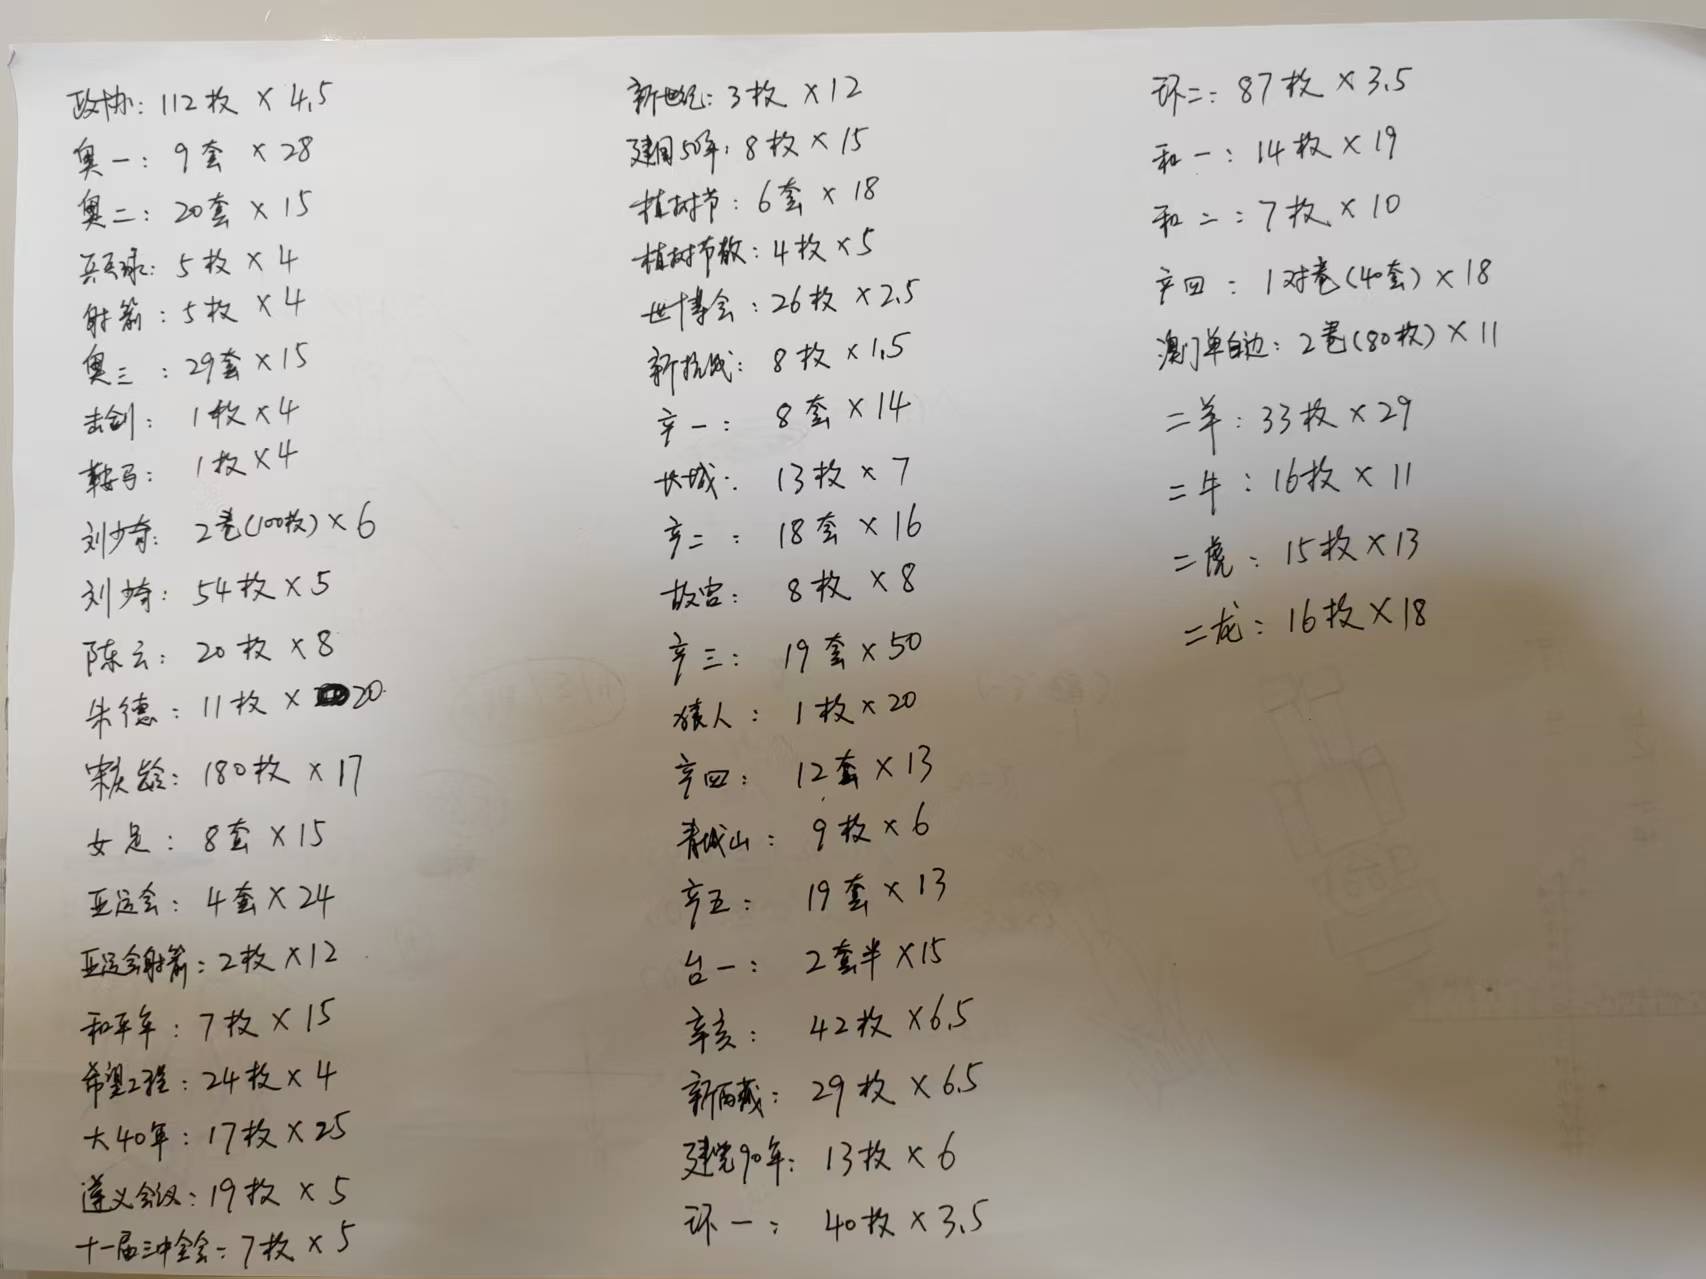 政协: 112枚 × 4.5
奥一: 9套 × 28
奥二: 20套 × 15
乒乓球: 5枚 × 4
射箭: 5枚 × 4
奥三: 29套 × 15
击剑: 1枚 × 4
鞍马: 1枚 × 4
刘少奇: 2卷(100枚) × 6
刘少奇: 54枚 × 5
陈云: 20枚 × 8
朱德: 11枚 × 20
宋庆龄: 180枚 × 17
女足: 8套 × 15
亚运会: 4套 × 24
亚运会射箭: 2枚 × 12
和平年: 7枚 × 15
希望工程: 24枚 × 4
大40年: 17枚 × 25
遵义会议: 19枚 × 5
十一届三中全会: 7枚 × 5
新世纪: 3枚 × 12
建国50年: 8枚 × 15
植树节: 6套 × 18
植树节散: 4枚 × 5
世博会: 26枚 × 2.5
新抗战: 8枚 × 1.5
辛一: 8套 × 14
长城: 13枚 × 7
辛二: 18套 × 16
故宫: 8枚 × 8
辛三: 19套 × 50
猿人: 1枚 × 20
辛四: 12套 × 13
青城山: 9枚 × 6
辛五: 19套 × 13
台一: 2套半 × 15
辛亥: 42枚 × 6.5
新西藏: 29枚 × 6.5
建党90年: 13枚 × 6
环一: 40枚 × 3.5
环二: 87枚 × 3.5
和一: 14枚 × 19
和二: 7枚 × 10
辛四: 1对卷(40套) × 18
澳门单白边: 2卷(80枚) × 11
二羊: 33枚 × 29
二牛: 16枚 × 11
二虎: 15枚 × 13
二龙: 16枚 × 18